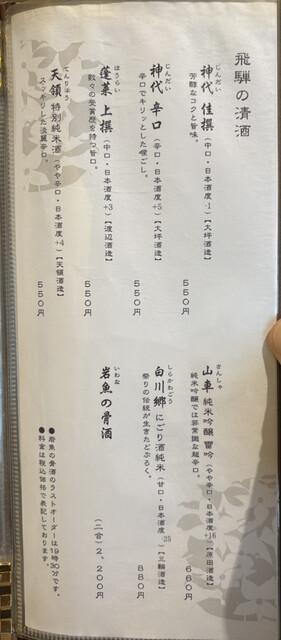 飛騨の清酒
じんだい
神代 佳撰（中口・日本酒度-1）【大坪酒造】
芳醇なコクと旨味。
550円
じんだい
神代 辛口（辛口・日本酒度+5）【大坪酒造】
辛口でキリッとした喉ごし。
550円
ほうらい
蓬莱 上撰（中口・日本酒度+3）【渡辺酒造】
数々の受賞歴を持つ旨口。
550円
てんりょう
天領 特別純米酒（やや辛口・日本酒度+4）【天領酒造】
スッキリした淡麗辛口。
550円
さんしゃ
山車 純米吟醸 雷吟（やや辛口・日本酒度+16）【原田酒造】
純米吟醸では非常識な超辛口。
660円
しらかわごう
白川郷 にごり酒純米（甘口・日本酒度-25）【三輪酒造】
祭りの伝統が生きたどぶろく。
880円
いわな
岩魚の骨酒
（二合）2,200円
●岩魚の骨酒のラストオーダーは19時30分です。
●料金は税込価格で表記しております。